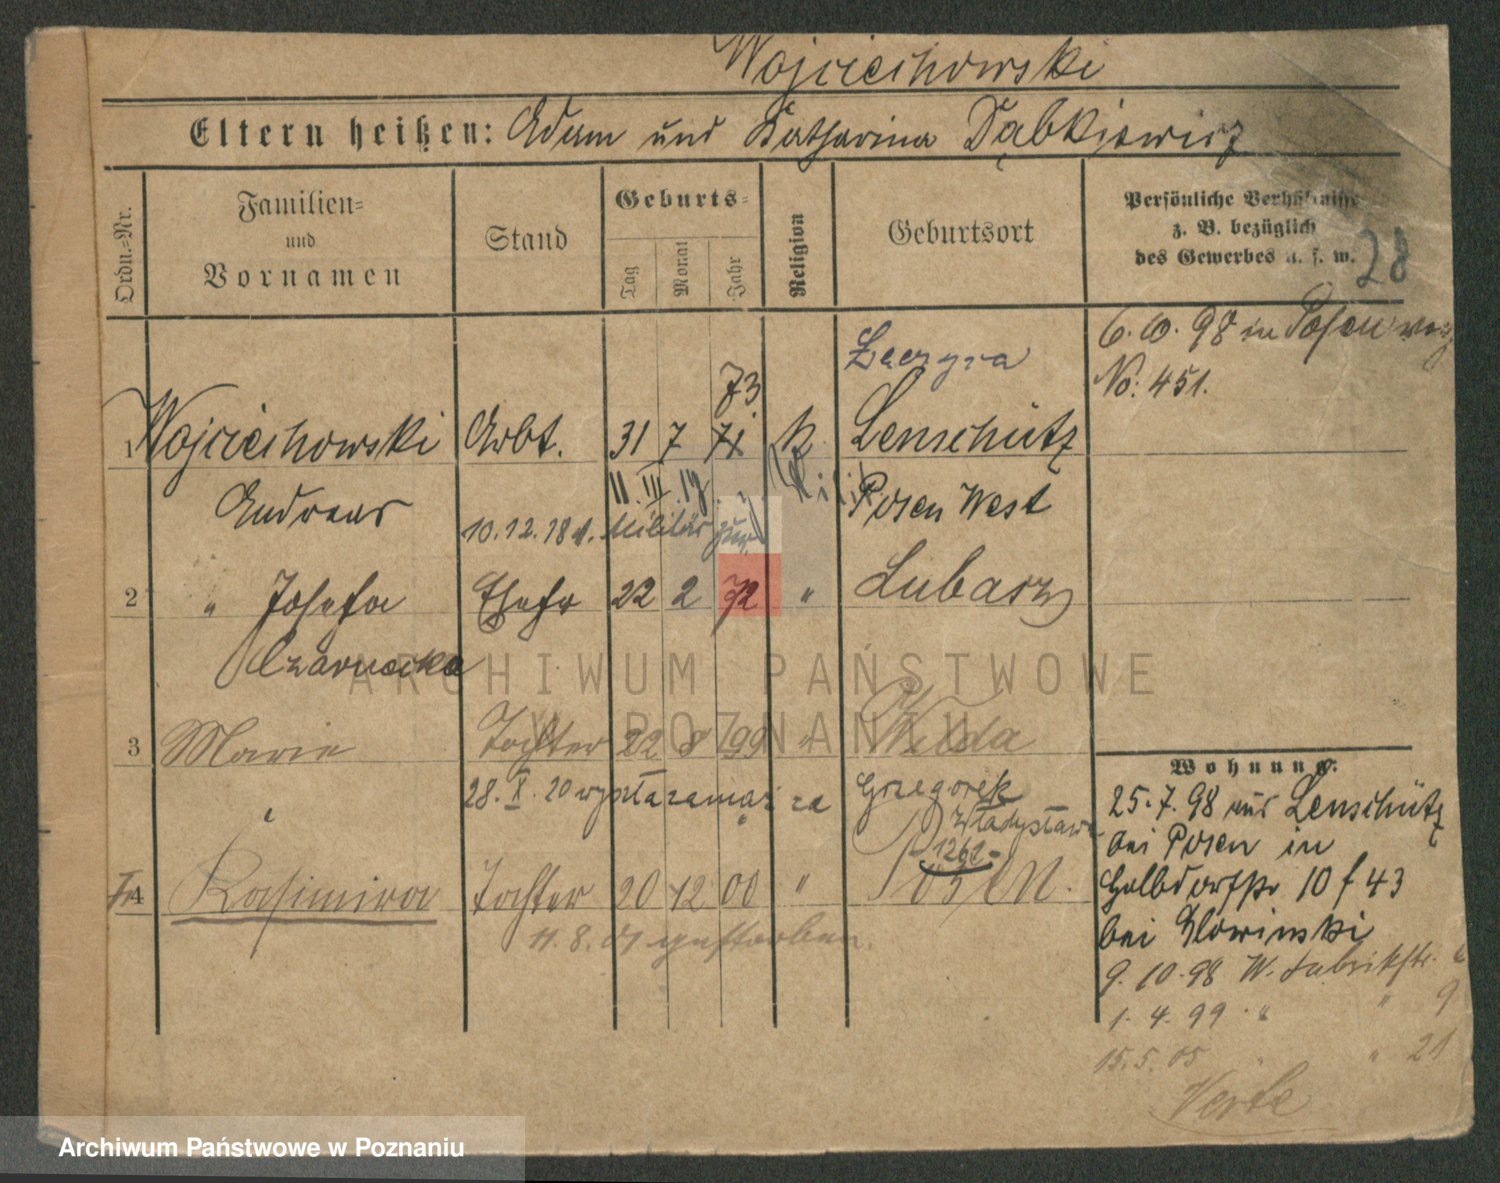 Wojciechowski
Eltern heißen: Adam und Katharina Dąbkiewicz
Ordn.=Nr.
Familien= und Vornamen
Stand
Geburts=
Tag
Monat
Jahr
Religion
Geburtsort
Persönliche Verhältnisse
z. B. bezüglich
des Gewerbes u. s. w.
28
6. 10. 98 in Posen
No. 451.
73
1 Wojciechowski Arbt. 31 7 71 k Lenschütz
Andreas
Posen West
10.12.18 Militär
2 " Josefa Ehefr 22 2 72 " Lubasz
Czarnecka
3 Marie Tochter 22 8 99 " Wilda
28. X. 20 za Grzegorek
Władysława
1261
4 Kasimira Tochter 20 12 00 " Posen.
11. 8. 01 gestorben.
Wohnung:
25. 7. 98 aus Lenschütz
bei Posen in
Halbdorfstr 10 f 43
bei Glowinski
9. 10. 98 W. Fabrikstr.
1. 4. 99 " " 9
15. 5. 05 " 21
Verte
ARCHIWUM PAŃSTWOWE
W POZNANIU
Archiwum Państwowe w Poznaniu